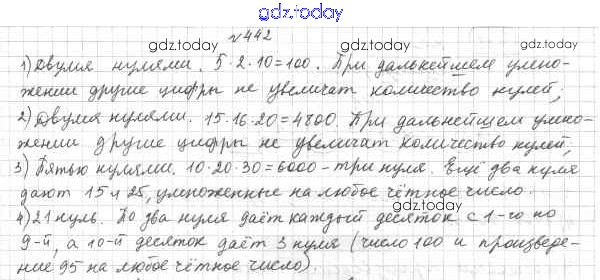 gdz.today
№442
gdz.today
gdz.today
1) Двумя нулями. 5·2·10=100. При дальнейшем умно-
жении другие цифры не увеличат количество нулей;
gdz.today
gdz.today
2) Двумя нулями. 15·16·20=4800. При дальнейшем умно-
жении другие цифры не увеличат количество нулей;
gdz.today
gdz.today
3) Пятью нулями. 10·20·30=6000-три нуля. Ещё два нуля
дают 15 и 25, умноженные на любое чётное число.
gdz.today
gdz.today
4) 21 нуль. По два нуля даёт каждый десяток с 1-го по
9-й, а 10-й десяток даёт 3 нуля (число 100 и произведе-
ние 95 на любое чётное число).
gdz.today
gdz.today